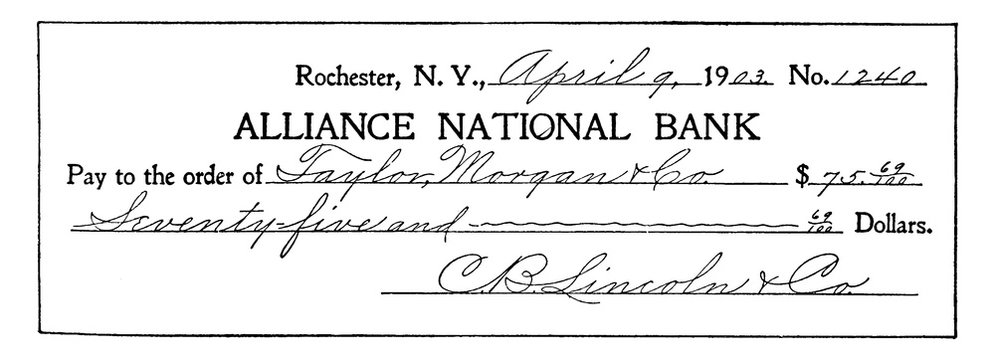 Rochester, N. Y., April 9, 1903. No. 1240
ALLIANCE NATIONAL BANK
Pay to the order of Taylor, Morgan & Co. $75.69/100
Seventy-five and 69/100 Dollars.
C. B. Lincoln & Co.